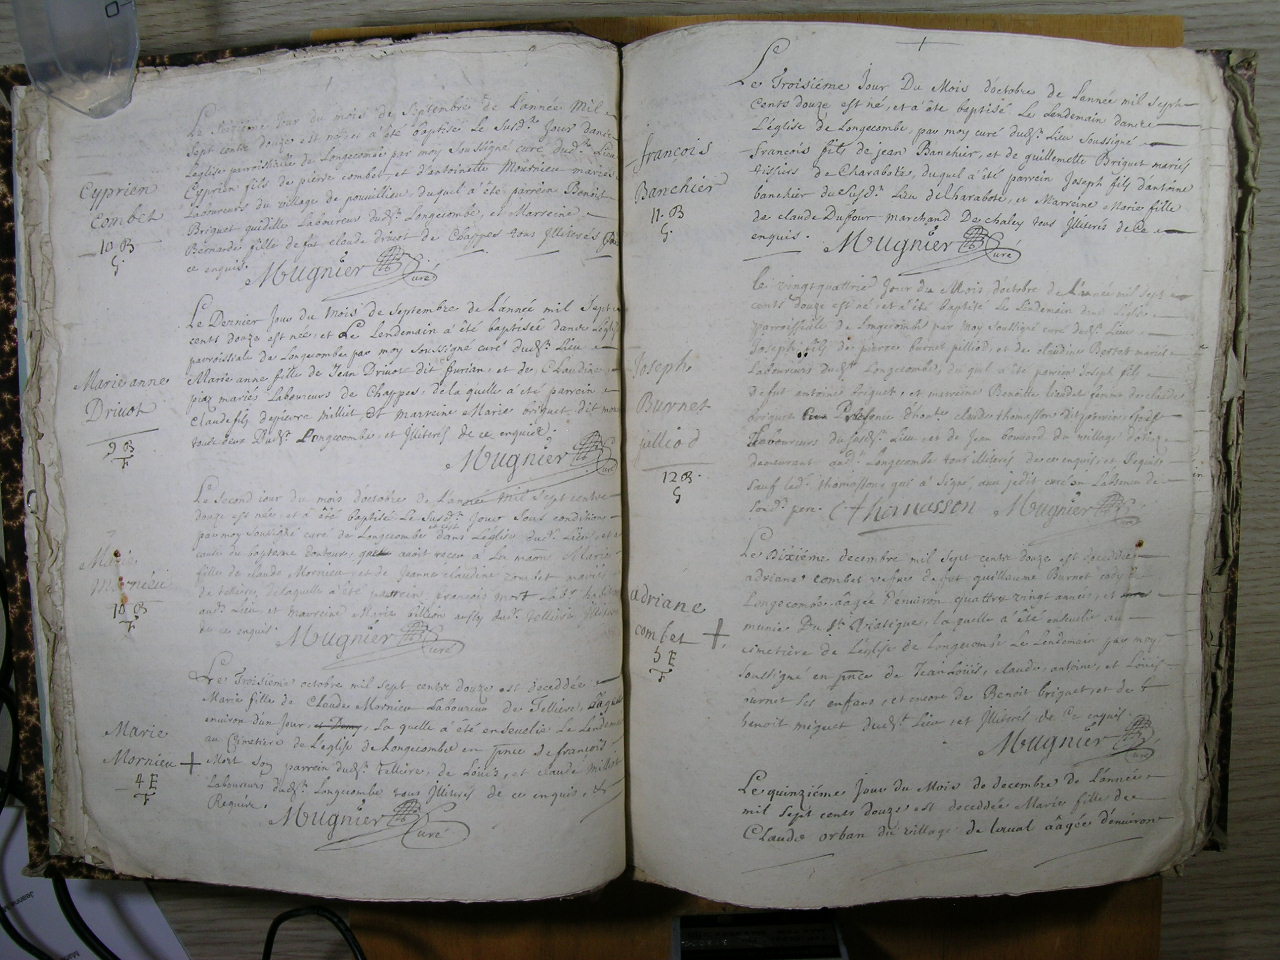 Cyprien
Combet
10 B
G
Le Jour du mois de Septembre de L'année Mil
Sept cents douze est né, et a été baptisé Le Susd. Jour dans
L'eglise parroissialle de Longecombe par moy Soussigné curé dud. Lieu
Cyprien fils de pierre combet, et d'antoinette Mornieu mariés
Laboureurs du village de pouvillieu, duquel a été parrein Benoit
Briguet quidille Laboureurs dud. Longecombe, et Marreine
Bernarde fille de fut claude druot de Chappes tous Jlliterés
ce enquis. Mugnier Curé
Marie anne
Druot
9 B
F
Le Dernier Jour du Mois de Septembre de L'année mil Sept
cents douze est née, et Le Lendemain a été baptisée dans L'egl.
parroissiale de Longecombe par moy Soussigné curé dud. Lieu
Marie anne fille de Jean Druot dit furian, et de Claudine
piax mariés Laboureurs de Chappes, de laquelle a été parrein
Claude fils de pierre millet et marreine Marie briguet, dit
tous deux Dud. Longecombe, et Jlliterés de ce enquis.
Mugnier Curé
Marie
Mornieu
10 B
F
Le Second jour du mois d'octobre de L'année Mil Sept cents
douze est née, et a été baptisé Le Susd. Jour Sous conditions
par moy Soussigné curé de Longecombe dans L'eglise dud. Lieu, et a
cause du baptesme douteux avoit receu a La maison Marie
fille de claude Mornieu, et de Jeanne claudine combet mariés
de telliere, de laquelle a été parrein francois mort Lab.
aud. Lieu, et marreine Marie aussy dud. Telliere Jlliterés
de ce enquis. Mugnier Curé
Marie
Mornieu +
4 E
F
Le Troisième octobre mil sept cents douze est deceddée
Marie fille de Claude Mornieu Laboureur de Telliere, aâgée
environ d'un Jour, La quelle a été ensevelie Le Lendemain
au Cimetière de L'eglise de Longecombe en pnce de francois
Mort Son parrein dud. Telliere, de Loüis, et claude Millet
Laboureurs dud. Longecombe tous Jlliterés de ce enquis, et
Requis. Mugnier Curé
francois
Banchier
11 B
G
Le Troisiéme Jour Du Mois d'octobre de L'année mil Sept
Cents douze est né, et a été baptisé Le Lendemain dans
L'église de Longecombe, par moy curé dud. Lieu Soussigné
francois fils de jean Banchier, et de guillemette Briguet mariés
tissiers de Charabote, duquel a été parrein Joseph fils d'antoine
banchier du Susd. Lieu de Charabote, et Marreine Marie fille
de claude Duffour marchand De chaley tous Jlliterés de Ce
enquis. Mugnier Curé
Joseph
Burnet
pilliod
12 B
G
le vingt quattrie Jour du Mois d'octobre de L'année mil sept
cents douze est né, et a été baptisé Le Lendemain dans L'eglise
parroissiale de Longecombe par moy Soussigné curé dud. Lieu
Joseph fils de pierre burnet pilliod, et de claudine Bertet mariés
Laboureurs dud. Longecombe, duquel a été parrein Joseph fils
de fut antoine briguet, et marreine Benoitte lieudat femme de claude
briguet presence d'hon. claude thomasson
Laboureurs du susd. Lieu, et de Jean bouvard du village
demeurant aud. Longecombe tous Jlliterés de ce enquis, et Requis
Sauf led. thomasson qui a Signé avec jedit curé en L'absence de
Sond. pere. C Thomasson Mugnier Curé
adriane
combet +
5 E
F
Le Dixiéme decembre mil Sept cents douze est deceddée
adriane combet vefve de fut guillaume Burnet
Longecombe aâgée d'environ quattre vingt années, et
munie Du St. Viatique, La quelle a été ensevelie au
cimetière de L'eglise de Longecombe Le Lendemain par moy
Soussigné en pnce de Jean Loüis, claude, antoine, et Loüis
burnet Ses enfans, et encore de Benoit briguet, et de
benoit miguet dud. Lieu, et Jlliterés de Ce enquis
Mugnier Curé
Le quinziéme Jour du Mois de decembre de L'année
mil Sept cents douze est deceddée Marie fille de
Claude orban du village de Laval aâgée d'environ